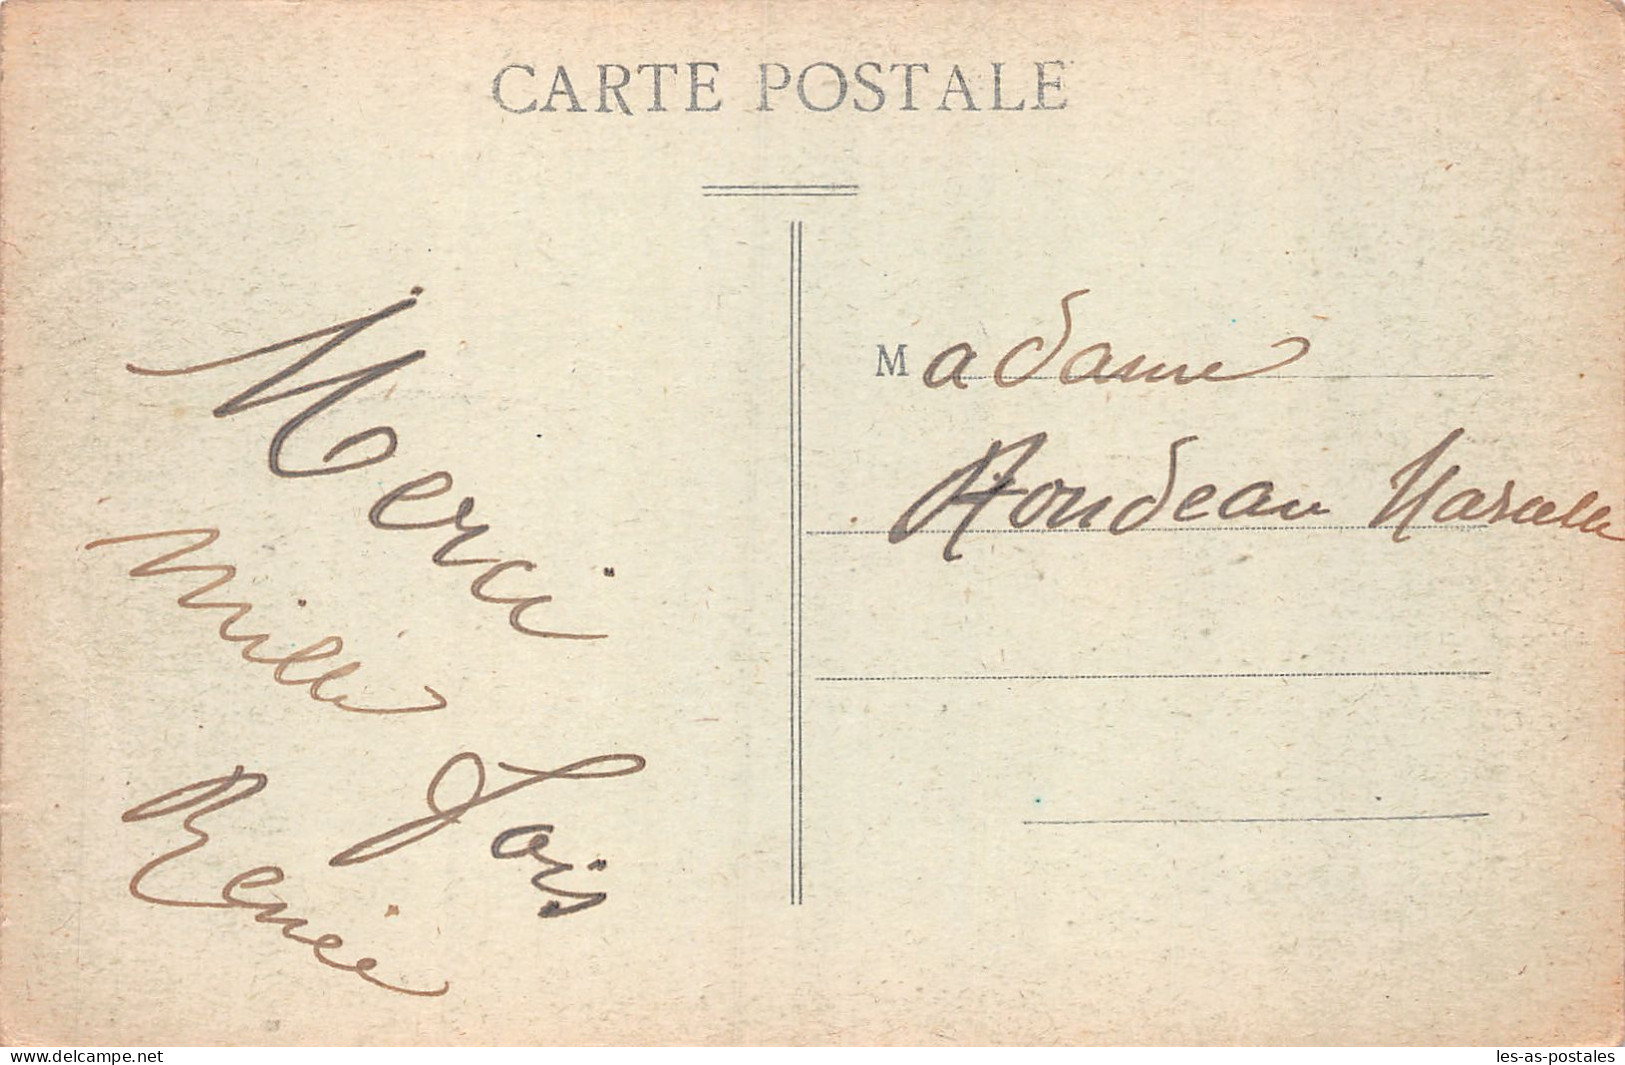 CARTE POSTALE
Merci
mille
fois
Renée
Madame
Rondeau Marcelle
www.delcampe.net
les-as-postales